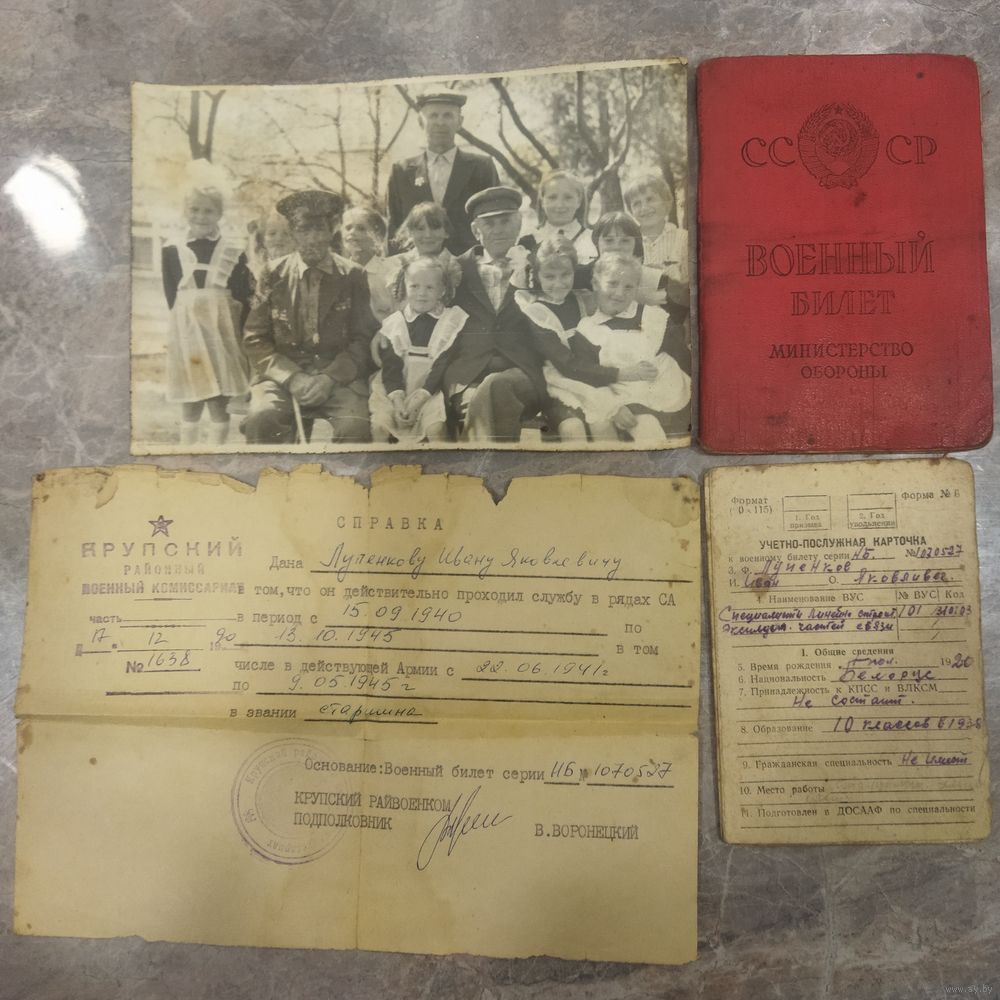 СС СР
ВОЕННЫЙ
БИЛЕТ
МИНИСТЕРСТВО
ОБОРОНЫ
КРУПСКИЙ
РАЙОННЫЙ
ВОЕННЫЙ КОМИССАРИАТ
часть
17 " 12 19 90
№ 1638
СПРАВКА
Дана Лупенкову Ивану Яковлевичу
в том, что он действительно проходил службу в рядах СА
в период с 15.09.1940 по
13.10.1945 в том
числе в действующей Армии с 22.06.1941г
по 9.05.1945г
в звании старшина
Основание:Военный билет серии НБ № 1070527
КРУПСКИЙ РАЙВОЕНКОМ
ПОДПОЛКОВНИК
В.ВОРОНЕЦКИЙ
Формат
Форма № Б
1. Год призыва
2. Год увольнения
УЧЕТНО-ПОСЛУЖНАЯ КАРТОЧКА
к военному билету серии НБ. №1070527
З. Ф. Лупенков
И. Иван О. Яковлевич.
4. Наименование ВУС № ВУС Код
101
частей связи
I. Общие сведения
5. Время рождения 1920
6. Национальность Белорус
7. Принадлежность к КПСС и ВЛКСМ
Не состоит.
8. Образование 10 классов в 1938
9. Гражданская специальность Не имеет
10. Место работы
11. Подготовлен в ДОСААФ по специальности
www.ay.by